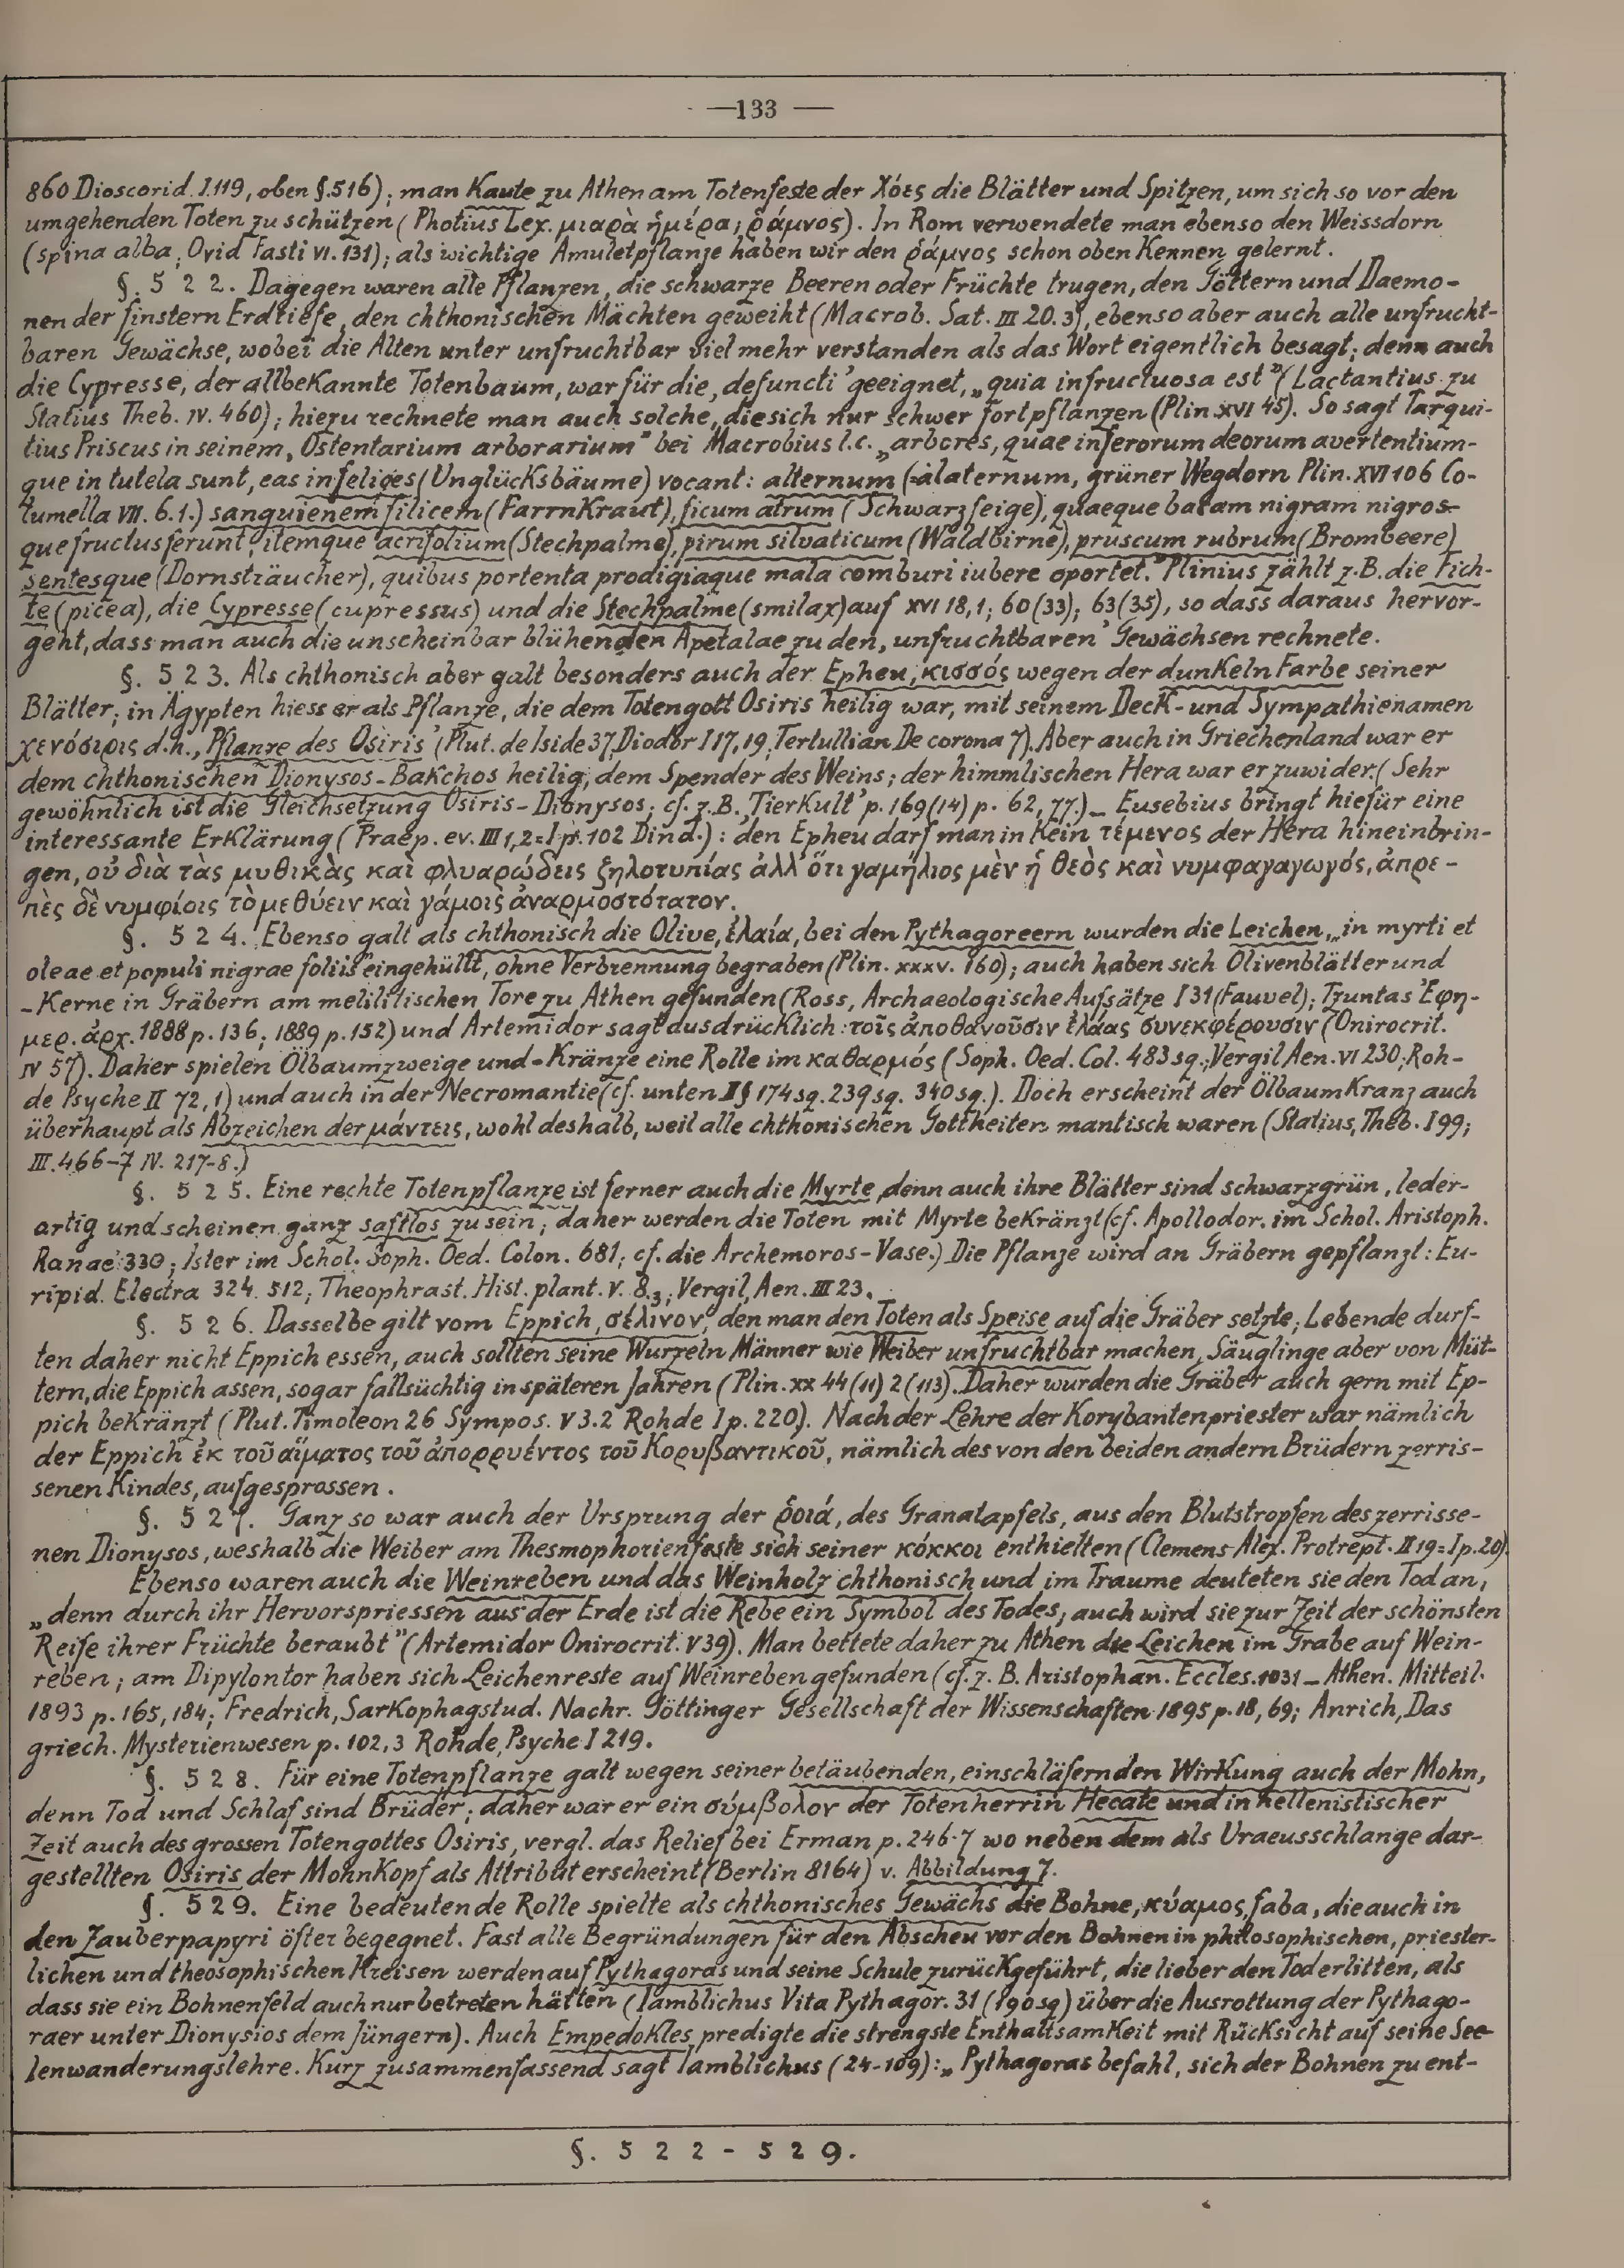 —133—
860 Dioscorid. I.119, oben §.516); man Kaute zu Athen am Totenfeste der Χόες die Blätter und Spitzen, um sich so vor den
umgehenden Toten zu schützen (Photius Lex. μιαρὰ ἡμέρα; ῥάμνος). In Rom verwendete man ebenso den Weissdorn
(spina alba, Ovid Fasti VI. 131); als wichtige Amuletpflanze haben wir den ῥάμνος schon oben Kennen gelernt.
§. 5 2 2. Dagegen waren alle Pflanzen, die schwarze Beeren oder Früchte trugen, den Göttern und Daemo-
nen der finstern Erdtiefe, den chthonischen Mächten geweiht (Macrob. Sat. III 20.3), ebenso aber auch alle unfrucht-
baren Gewächse, wobei die Alten unter unfruchtbar viel mehr verstanden als das Wort eigentlich besagt; denn auch
die Cypresse, der allbeKannte Totenbaum, war für die ‚defuncti' geeignet, „quia infructuosa est" (Lactantius zu
Statius Theb. IV. 460); hiezu rechnete man auch solche, die sich nur schwer fortpflanzen (Plin. XVI 45). So sagt Tarqui-
tius Priscus in seinem „Ostentarium arborarium" bei Macrobius l.c. „arbores, quae inferorum deorum avertentium-
que in tutela sunt, eas infelices (Unglücksbäume) vocant: alternum (=alaternum, grüner Wegdorn Plin. XVI 106 Co-
lumella VII. 6.1.) sanguienem filicem (FarrnKraut), ficum atrum (Schwarzfeige), quaeque bacam nigram nigros-
que fructus ferunt, itemque acrifolium (Stechpalme), pirum silvaticum (Waldbirne), pruscum rubrum (Brombeere)
sentesque (Dornsträucher), quibus portenta prodigiaque mala comburi iubere oportet." Plinius zählt z.B. die Fich-
te (picea), die Cypresse (cupressus) und die Stechpalme (smilax) auf XVI 18,1; 60(33); 63(35), so dass daraus hervor-
geht, dass man auch die unscheinbar blühenden Apetalae zu den ‚unfruchtbaren' Gewächsen rechnete.
§. 5 2 3. Als chthonisch aber galt besonders auch der Epheu, κισσός wegen der dunKeln Farbe seiner
Blätter; in Ägypten hiess er als Pflanze, die dem Totengott Osiris heilig war, mit seinem DecK- und Sympathienamen
χενόσιρις d.h. ‚Pflanze des Osiris' (Plut. de Iside 37, Diodor I 17, 19, Tertullian De corona 7). Aber auch in Griechenland war er
dem chthonischen Dionysos-BaKchos heilig, dem Spender des Weins; der himmlischen Hera war er zuwider. (Sehr
gewöhnlich ist die Gleichsetzung Osiris-Dionysos; cf. z.B. ‚TierKult' p. 169 (14) p. 62, 77.) — Eusebius bringt hiefür eine
interessante ErKlärung (Praep. ev. III 1,2 = I p. 102 Dind.): den Epheu darf man in Kein τέμενος der Hera hineinbrin-
gen, οὐ διὰ τὰς μυθικὰς καὶ φλυαρώδεις ζηλοτυπίας ἀλλ' ὅτι γαμήλιος μὲν ἡ θεὸς καὶ νυμφαγαγωγός, ἀπρε-
πὲς δὲ νυμφίοις τὸ μεθύειν καὶ γάμοις ἀναρμοστότατον.
§. 5 2 4. Ebenso galt als chthonisch die Olive, ἐλαία, bei den Pythagoreern wurden die Leichen „in myrti et
oleae et populi nigrae foliis" eingehüllt, ohne Verbrennung begraben (Plin. XXXV. 160); auch haben sich Olivenblätter und
-Kerne in Gräbern am melilitischen Tore zu Athen gefunden (Ross, Archaeologische Aufsätze I 31 (Fauvel); Tzuntas Ἐφη-
μερ. ἀρχ. 1888 p. 136; 1889 p. 152) und Artemidor sagt ausdrücklich: τοῖς ἀποθανοῦσιν ἐλάας συνεκφέρουσιν (Onirocrit.
IV 57). Daher spielen Ölbaumzweige und -Kränze eine Rolle im καθαρμός (Soph. Oed. Col. 483 sq.; Vergil Aen. VI 230; Roh-
de Psyche II 72,1) und auch in der Necromantie (cf. unten II § 174 sq. 239 sq. 340 sq.). Doch erscheint der ÖlbaumKranz auch
überhaupt als Abzeichen der μάντεις, wohl deshalb, weil alle chthonischen Gottheiten mantisch waren (Statius, Theb. I 99;
III. 466-7 IV. 217-8.)
§. 5 2 5. Eine rechte Totenpflanze ist ferner auch die Myrte, denn auch ihre Blätter sind schwarzgrün, leder-
artig und scheinen ganz saftlos zu sein; daher werden die Toten mit Myrte beKränzt (cf. Apollodor. im Schol. Aristoph.
Ranae 330; Ister im Schol. Soph. Oed. Colon. 681; cf. die Archemoros-Vase.) Die Pflanze wird an Gräbern gepflanzt: Eu-
ripid. Electra 324. 512; Theophrast. Hist. plant. V. 8.3; Vergil, Aen. III 23.
§. 5 2 6. Dasselbe gilt vom Eppich, σέλινον, den man den Toten als Speise auf die Gräber setzte; Lebende durf-
ten daher nicht Eppich essen, auch sollten seine Wurzeln Männer wie Weiber unfruchtbar machen, Säuglinge aber von Müt-
tern, die Eppich assen, sogar fallsüchtig in späteren Jahren (Plin. XX 44 (11) 2 (113). Daher wurden die Gräber auch gern mit Ep-
pich beKränzt (Plut. Timoleon 26 Sympos. V 3.2 Rohde I p. 220). Nach der Lehre der Korybantenpriester war nämlich
der Eppich ἐκ τοῦ αἵματος τοῦ ἀπορρυέντος τοῦ Κορυβαντικοῦ, nämlich des von den beiden andern Brüdern zerris-
senen Kindes, aufgesprossen.
§. 5 2 7. Ganz so war auch der Ursprung der ῥοιά, des Granatapfels, aus den Blutstropfen des zerrisse-
nen Dionysos, weshalb die Weiber am Thesmophorienfeste sich seiner κόκκοι enthielten (Clemens Alex. Protrept. II 19 = I p. 20).
Ebenso waren auch die Weinreben und das Weinholz chthonisch und im Traume deuteten sie den Tod an,
„denn durch ihr Hervorspriessen aus der Erde ist die Rebe ein Symbol des Todes, auch wird sie zur Zeit der schönsten
Reife ihrer Früchte beraubt" (Artemidor Onirocrit. V 39). Man bettete daher zu Athen die Leichen im Grabe auf Wein-
reben; am Dipylontor haben sich Leichenreste auf Weinreben gefunden (cf. z. B. Aristophan. Eccles. 1031 — Athen. Mitteil.
1893 p. 165, 184; Fredrich, SarKophagstud. Nachr. Göttinger Gesellschaft der Wissenschaften 1895 p. 18, 69; Anrich, Das
griech. Mysterienwesen p. 102,3 Rohde, Psyche I 219.
§. 5 2 8. Für eine Totenpflanze galt wegen seiner betäubenden, einschläfernden WirKung auch der Mohn,
denn Tod und Schlaf sind Brüder; daher war er ein σύμβολον der Totenherrin Hecate und in hellenistischer
Zeit auch des grossen Totengottes Osiris, vergl. das Relief bei Erman p. 246-7 wo neben dem als Uraeusschlange dar-
gestellten Osiris der MohnKopf als Attribut erscheint (Berlin 8164) v. Abbildung 7.
§. 5 2 9. Eine bedeutende Rolle spielte als chthonisches Gewächs die Bohne, κύαμος, faba, die auch in
den Zauberpapyri öfter begegnet. Fast alle Begründungen für den Abscheu vor den Bohnen in philosophischen, priester-
lichen und theosophischen Kreisen werden auf Pythagoras und seine Schule zurücKgeführt, die lieber den Tod erlitten, als
dass sie ein Bohnenfeld auch nur betreten hätten (Iamblichus Vita Pythagor. 31 (190 sq) über die Ausrottung der Pythago-
raer unter Dionysios dem Jüngern). Auch EmpedoKles predigte die strengste EnthaltsamKeit mit Rücksicht auf seine See-
lenwanderungslehre. Kurz zusammenfassend sagt Iamblichus (24-109): „Pythagoras befahl, sich der Bohnen zu ent-
§. 5 2 2 - 5 2 9.